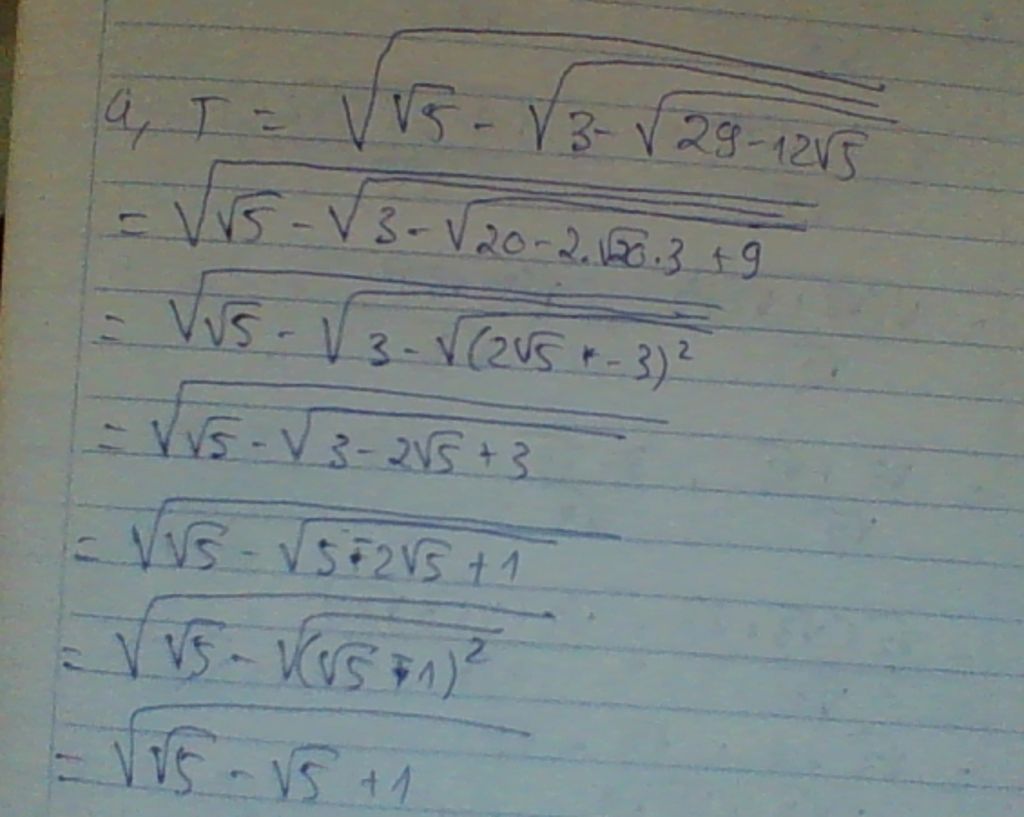 a, T = √(√5 - √(3 - √(29 - 12√5)))
= √(√5 - √(3 - √(20 - 2.√20.3 + 9)))
= √(√5 - √(3 - √((2√5 - 3)²)))
= √(√5 - √(3 - 2√5 + 3))
= √(√5 - √(5 - 2√5 + 1))
= √(√5 - √((√5 - 1)²))
= √(√5 - √5 + 1)